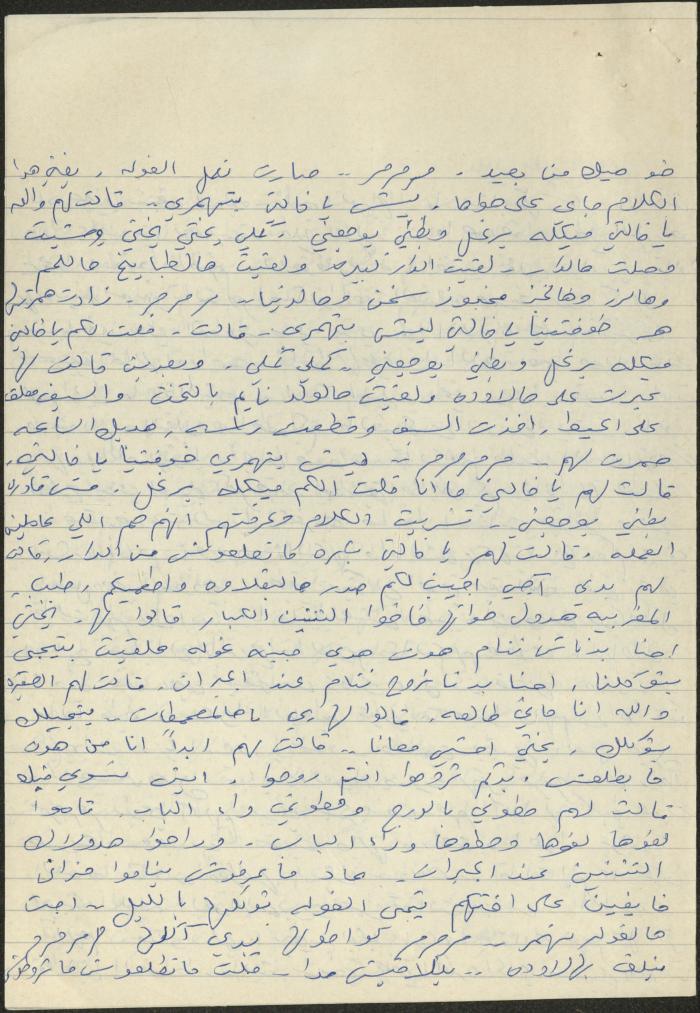 ضو صيك من بعيد . مرمرمر .. صارت تعل الغوله ,
الكلام جاي على حواها . ليش يا خالتي بتهمري .. قالت لهم والله
يا خالتي ميكله برغل وبطني يوجعني . كملي يختي يختي ومشيت
وصلت هالدار .. لقيت الدار كبيره ولقيت هالطبايخ هاللحم
وهالرز وهالخبز مخبوز سخن وهالدنيا .. مرمرمر . زادت همرتها
هـ خوفتينا يا خالتي ليش بتهمري .. قالت . قلت لكم يا خالتي
ميكله برغل وبطني يوجعني .. كملي كملي . وبعدين قالت لها
عبرت على هالاوده ولقيت هالولد نايم بالتخت والسيف معلق
على الحيط , اخذت السيف وقطعت راسه , هديك الساعه
همرت لهم .. مرمرمرمر .. ليش بتهمري خوفتينا يا خالتي .
قالت لهم يا خالتي ما انا قلت الكم ميكله برغل . مش قادره
بطني يوجعني .. تسربت الكلام وعرفتهم انهم هم اللي عاملين
العمله . قالت لهم يا خالتي بكره ما تطلعوش من الدار , قالت
لهم بدي آجي اجيب لكم صدر هالبقلاوه واطعميكم , طيب .
المغربيه هدول خواتها فاقوا الثنتين الكبار قالوا لها . يختي
احنا بدناش ننام هون هدي مبينه غوله هلقيت بتيجي
بتوكلنا , احنا بدنا نروح ننام عند الجيران . قالت لهم الصغيره
والله انا ماني طالعه . قالوا لها بي يا هالمصمطات .. بتجيلك
بتوكلك , يختي امشي معانا .. قالت لهم ابداً انا من هون
ما بطلعش . بدكم تروحوا انتم روحوا . ايش نسوي فيك
قالت لهم حطوني بالدرج وحطوني وراء الباب . قاموا
لفوها لفوها وحطوها وراء الباب .. وراحوا هدولاك
الثنتين عند الجيران . هاد ما عرفوش يناموا حزانى
خايفين على اختهم تيجي الغوله توكلها بالليل .. اجت
هالغوله تهمر .. مرمرمر كواطولها بدي آكلها مرمرمر
بهالاوده .. بتلاقيش حدا .. قلت ما تطلعوش ما تروحوش